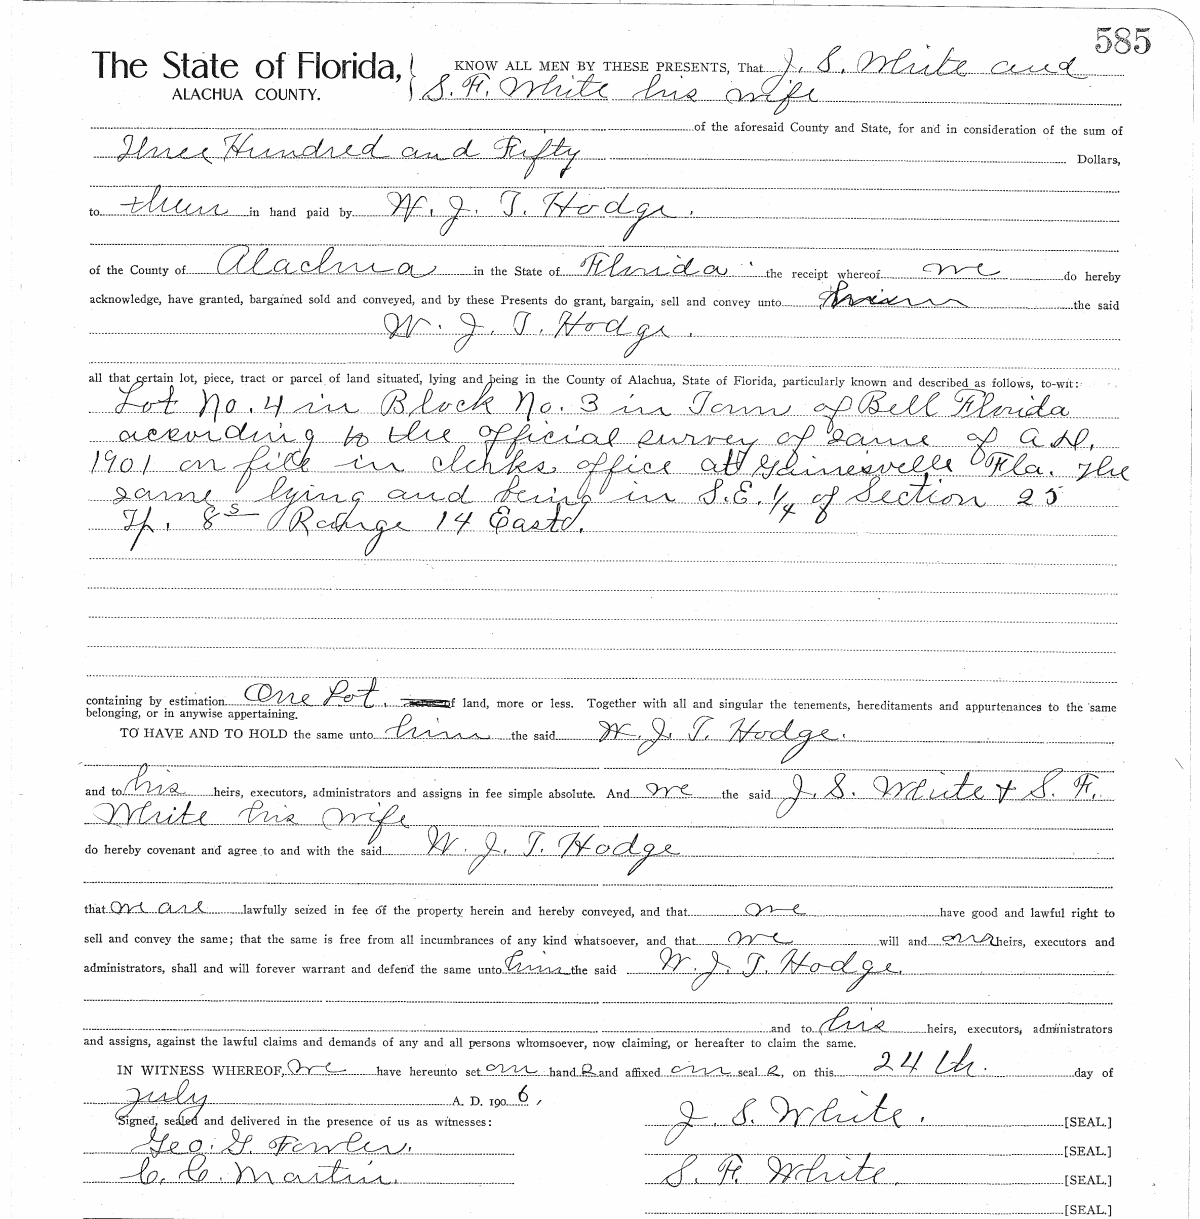 585
The State of Florida, KNOW ALL MEN BY THESE PRESENTS, That J. S. White and
ALACHUA COUNTY. S. F. White his wife
of the aforesaid County and State, for and in consideration of the sum of
Three Hundred and Fifty Dollars,
to them in hand paid by W. J. T. Hodge.
of the County of Alachua in the State of Florida the receipt whereof we do hereby
acknowledge, have granted, bargained sold and conveyed, and by these Presents do grant, bargain, sell and convey unto the said
W. J. T. Hodge.
all that certain lot, piece, tract or parcel of land situated, lying and being in the County of Alachua, State of Florida, particularly known and described as follows, to-wit:
Lot No. 4 in Block No. 3 in Town of Bell Florida
according to the official survey of same of A.D.
1901 on file in clerks office at Gainesville Fla. The
same lying and being in S.E. 1/4 of Section 25
Tp. 8 S Range 14 East.
containing by estimation One Lot. acres of land, more or less. Together with all and singular the tenements, hereditaments and appurtenances to the same
belonging, or in anywise appertaining.
TO HAVE AND TO HOLD the same unto him the said W. J. T. Hodge.
and to his heirs, executors, administrators and assigns in fee simple absolute. And we the said J. S. White & S. F.
White his wife
do hereby covenant and agree to and with the said W. J. T. Hodge
that we are lawfully seized in fee of the property herein and hereby conveyed, and that we have good and lawful right to
sell and convey the same; that the same is free from all incumbrances of any kind whatsoever, and that we will and our heirs, executors and
administrators, shall and will forever warrant and defend the same unto him the said W. J. T. Hodge.
and to his heirs, executors, administrators
and assigns, against the lawful claims and demands of any and all persons whomsoever, now claiming, or hereafter to claim the same.
IN WITNESS WHEREOF, we have hereunto set our hand s and affixed our seal s, on this 24th. day of
July A. D. 190 6,
Signed, sealed and delivered in the presence of us as witnesses: J. S. White. [SEAL.]
Geo. G. Fowler. [SEAL.]
C. C. Martin. S. F. White. [SEAL.]
[SEAL.]